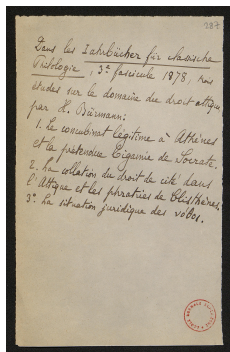 207
Dans les Jahrbücher für classische
Philologie, 3e fascicule 1878, trois
études sur le domaine du droit attique
par H. Bürmann:
1. Le concubinat légitime à Athènes
et la prétendue bigamie de Socrate.
2. La collation du droit de cité dans
l'Attique et les phratries de Clisthènes.
3º. La situation juridique des νόθοι.